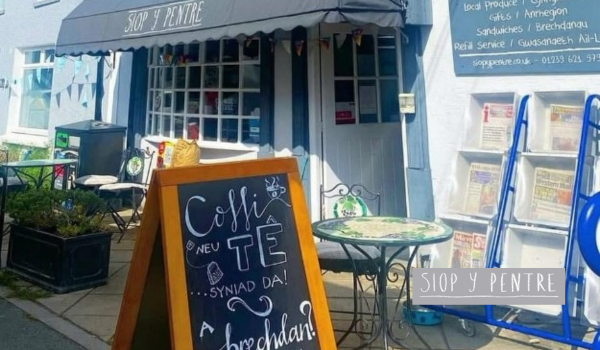 SIOP Y PENTRE
Local Produce /
Gifts / Anrhegion
Sandwiches / Brechdanau
Refill Service / Gwasanaeth Ail-L
siopypentre.co.uk - 01239 621 5
Coffi
NEU TÊ
...SYNIAD DA!
A
brechdan?
SIOP Y PENTRE